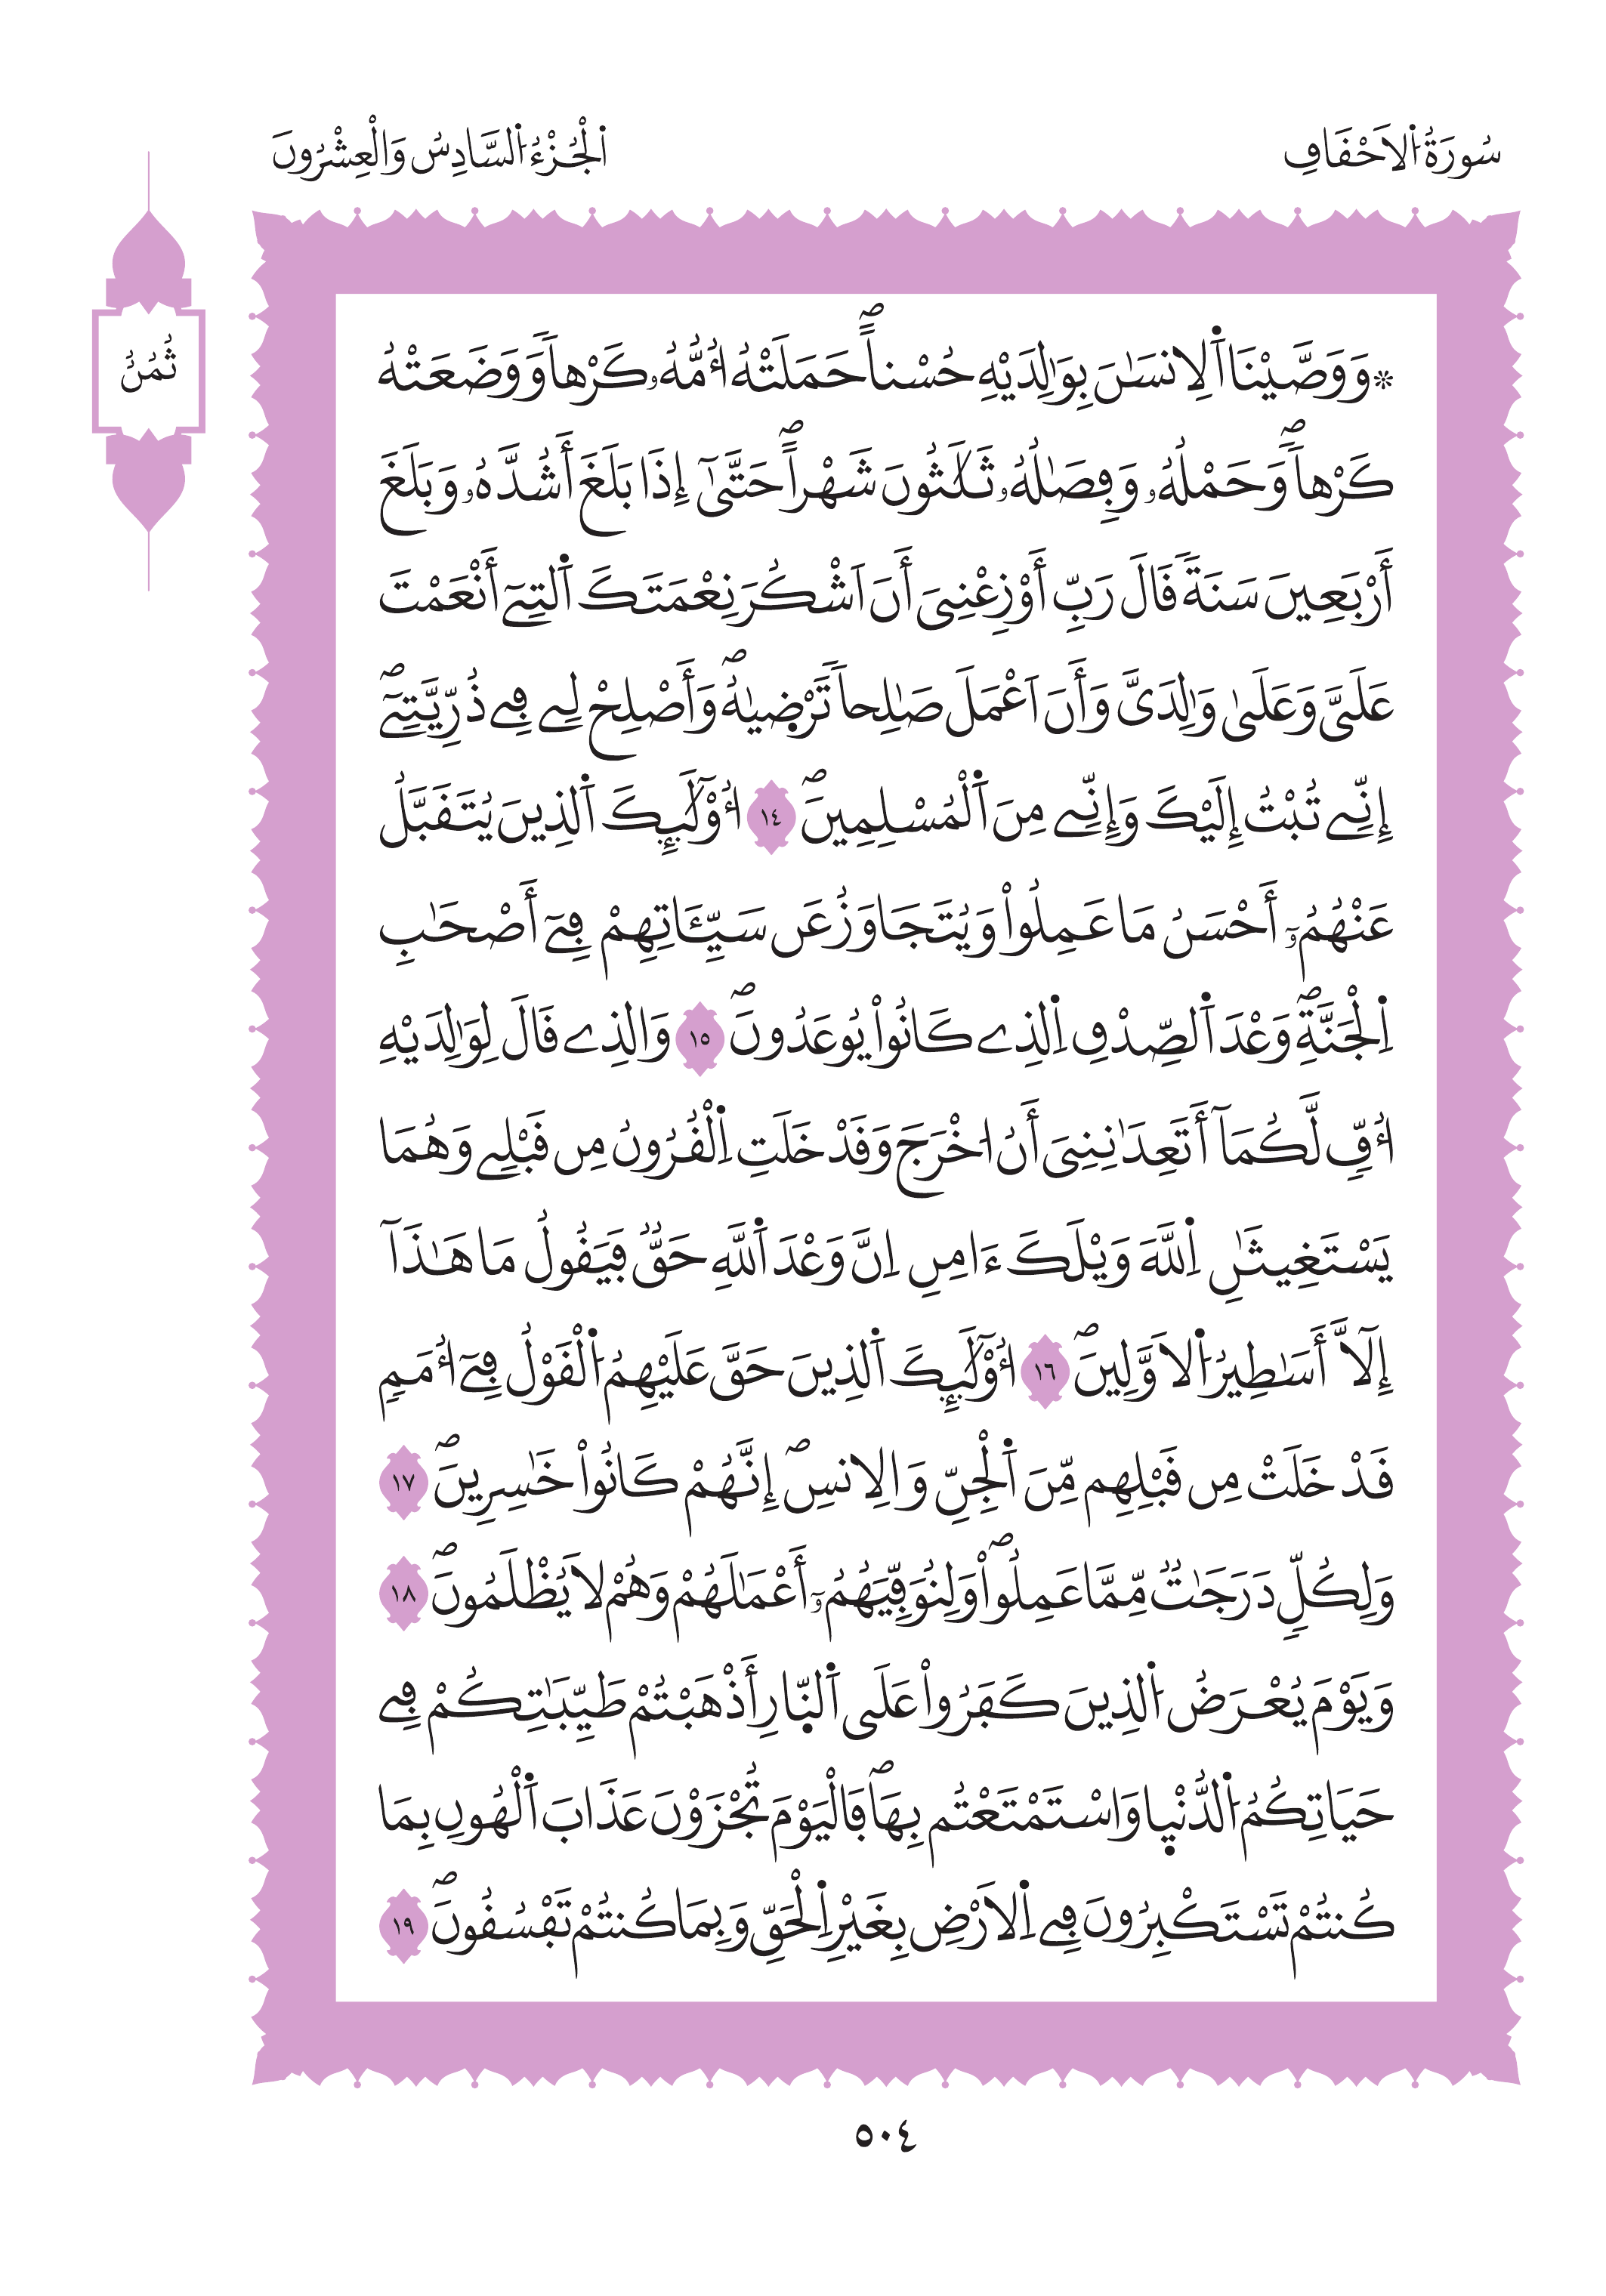 سُورَةُ اُ۬لَاحْقَافِ
اَ۬لْجُزْءُ اُ۬لسَّادِسُ وَالْعِشْرُونَ
ثُمُنُ
۞وَوَصَّيْنَا اَ۬لِانسَٰنَ بِوَٰلِدَيْهِ حُسْناًۖ حَمَلَتْهُ أُمُّهُۥ كَرْهاٗ وَوَضَعَتْهُ
كَرْهاٗۖ وَحَمْلُهُۥ وَفِصَٰلُهُۥ ثَلَٰثُونَ شَهْراًۖ حَتَّىٰٓ إِذَا بَلَغَ أَشُدَّهُۥ وَبَلَغَ
أَرْبَعِينَ سَنَةٗ قَالَ رَبِّ أَوْزِعْنِىَ أَنَ اَشْكُرَ نِعْمَتَكَ اَ۬لتِےٓ أَنْعَمْتَ
عَلَىَّ وَعَلَىٰ وَٰلِدَىَّ وَأَنَ اَعْمَلَ صَٰلِحاٗ تَرْض۪يٰهُۖ وَأَصْلِحْ لِے فِے ذُرِّيَّتِےٓۖ
إِنِّے تُبْتُ إِلَيْكَ وَإِنِّے مِنَ اَ۬لْمُسْلِمِينَۖ ١٤ أُوْلَٰٓئِكَ اَ۬لذِينَ يُتَقَبَّلُ
عَنْهُمُۥٓ أَحْسَنُ مَا عَمِلُواْ وَيُتَجَاوَزُ عَن سَيِّـَٔاتِهِمْ فِےٓ أَصْحَٰبِ
اِ۬لْجَنَّةِۖ وَعْدَ اَ۬لصِّدْقِ اِ۬لذِے كَانُواْ يُوعَدُونَۖ ١٥ وَالذِے قَالَ لِوَٰلِدَيْهِ
أُفّٖ لَّكُمَآ أَتَعِدَٰنِنِىَ أَنُ ا۟خْرَجَ وَقَدْ خَلَتِ اِ۬لْقُرُونُ مِن قَبْلِے وَهُمَا
يَسْتَغِيثَٰنِ اِ۬للَّهَ وَيْلَكَ ءَامِنِ اِنَّ وَعْدَ اَ۬للَّهِ حَقّٞ فَيَقُولُ مَا هَٰذَآ
إِلَّآ أَسَٰطِيرُ اُ۬لَاوَّلِينَۖ ١٦ أُوْلَٰٓئِكَ اَ۬لذِينَ حَقَّ عَلَيْهِمُ اُ۬لْقَوْلُ فِےٓ أُمَمٖ
قَدْ خَلَتْ مِن قَبْلِهِم مِّنَ اَ۬لْجِنِّ وَالِانسِۖ إِنَّهُمْ كَانُواْ خَٰسِرِينَۖ ١٧
وَلِكُلّٖ دَرَجَٰتٞ مِّمَّا عَمِلُواْۖ وَلِنُوَفِّيَهُمُۥٓ أَعْمَٰلَهُمْ وَهُمْ لَا يُظْلَمُونَۖ ١٨
وَيَوْمَ يُعْرَضُ اُ۬لذِينَ كَفَرُواْ عَلَى اَ۬لنّ۪ارِ أَذْهَبْتُمْ طَيِّبَٰتِكُمْ فِے
حَيَاتِكُمُ اُ۬لدُّنْي۪ا وَاسْتَمْتَعْتُم بِهَاۖ فَالْيَوْمَ تُجْزَوْنَ عَذَابَ اَ۬لْهُونِ بِمَا
كُنتُمْ تَسْتَكْبِرُونَ فِے اِ۬لَارْضِ بِغَيْرِ اِ۬لْحَقِّ وَبِمَا كُنتُمْ تَفْسُقُونَۖ ١٩
٥٠٤